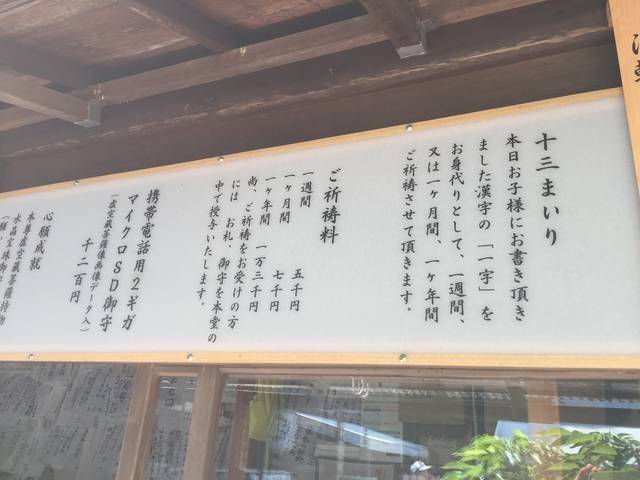 十三まいり
本日お子様にお書き頂き
ました漢字の「一字」を
お身代りとして、一週間、
又は一ヶ月間、一ヶ年間
ご祈祷させて頂きます。
ご祈祷料
一週間 五千円
一ヶ月間 七千円
一ヶ年間 一万三千円
尚、ご祈祷をお受けの方
には お札、御守を本堂の
中で授与いたします。
携帯電話用2ギガ
マイクロSD御守
(虚空蔵菩薩像画像データ入)
千二百円
心願成就
本尊虚空蔵菩薩持物
水晶宝珠御守